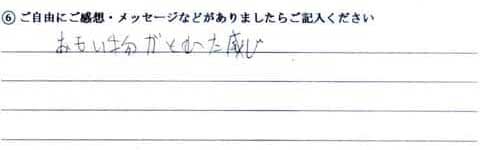 ⑥ ご自由にご感想・メッセージなどがありましたらご記入ください
おもい物がとれた感じ